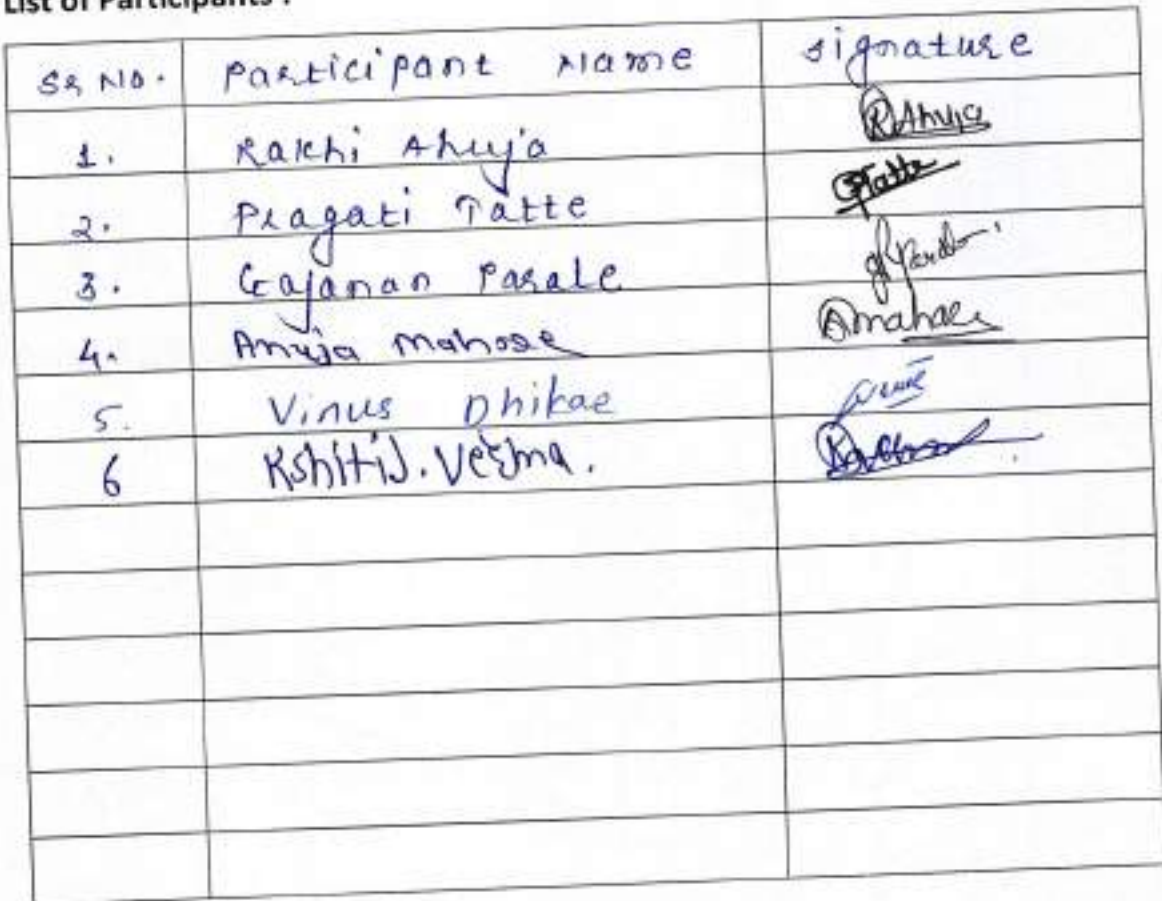 List of Participants :
Sr No. Participant Name signature
1. Rakhi Ahuja RAhuja
2. Pragati Tatte PTatte
3. Gajanan Parale
4. Anuja Mahore Amahore
5. Vinus Dhikae
6 Kshitij. Verma.